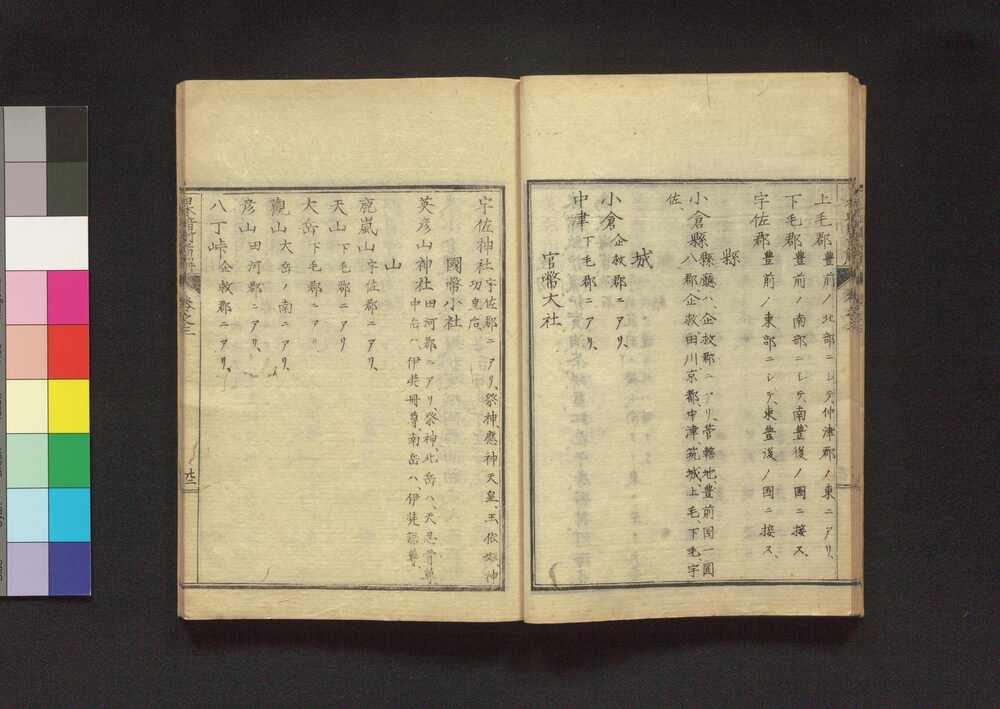 上毛郡 豊前ノ北部ニシテ、仲津郡ノ東ニアリ、
下毛郡 豊前ノ南部ニシテ、南豊後ノ國ニ接ス、
宇佐郡 豊前ノ東部ニシテ、東豊後ノ國ニ接ス、
縣
小倉縣 縣廳ハ、企救郡ニアリ、管轄地、豊前国一圓
八郡企救、田川京都、中津築城、上毛、下毛、宇
佐、
城
小倉 企救郡ニアリ、
中津 下毛郡ニアリ、
官幣大社
宇佐神社 宇佐郡ニアリ、祭神、應神天皇、玉依姫、神
功皇后、
國幣小社
英彦山神社 田河郡ニアリ、祭神、北岳ハ、天忍骨尊、
中岳ハ、伊弉冊尊、南岳ハ、伊弉諾尊、
山
鹿嵐山 宇佐郡ニアリ、
天山 下毛郡ニアリ
大岳 下毛郡ニアリ
觀山 大岳ノ南ニアリ、
彦山 田河郡ニアリ、
八丁峠 企救郡ニアリ、
卷之三
廿二